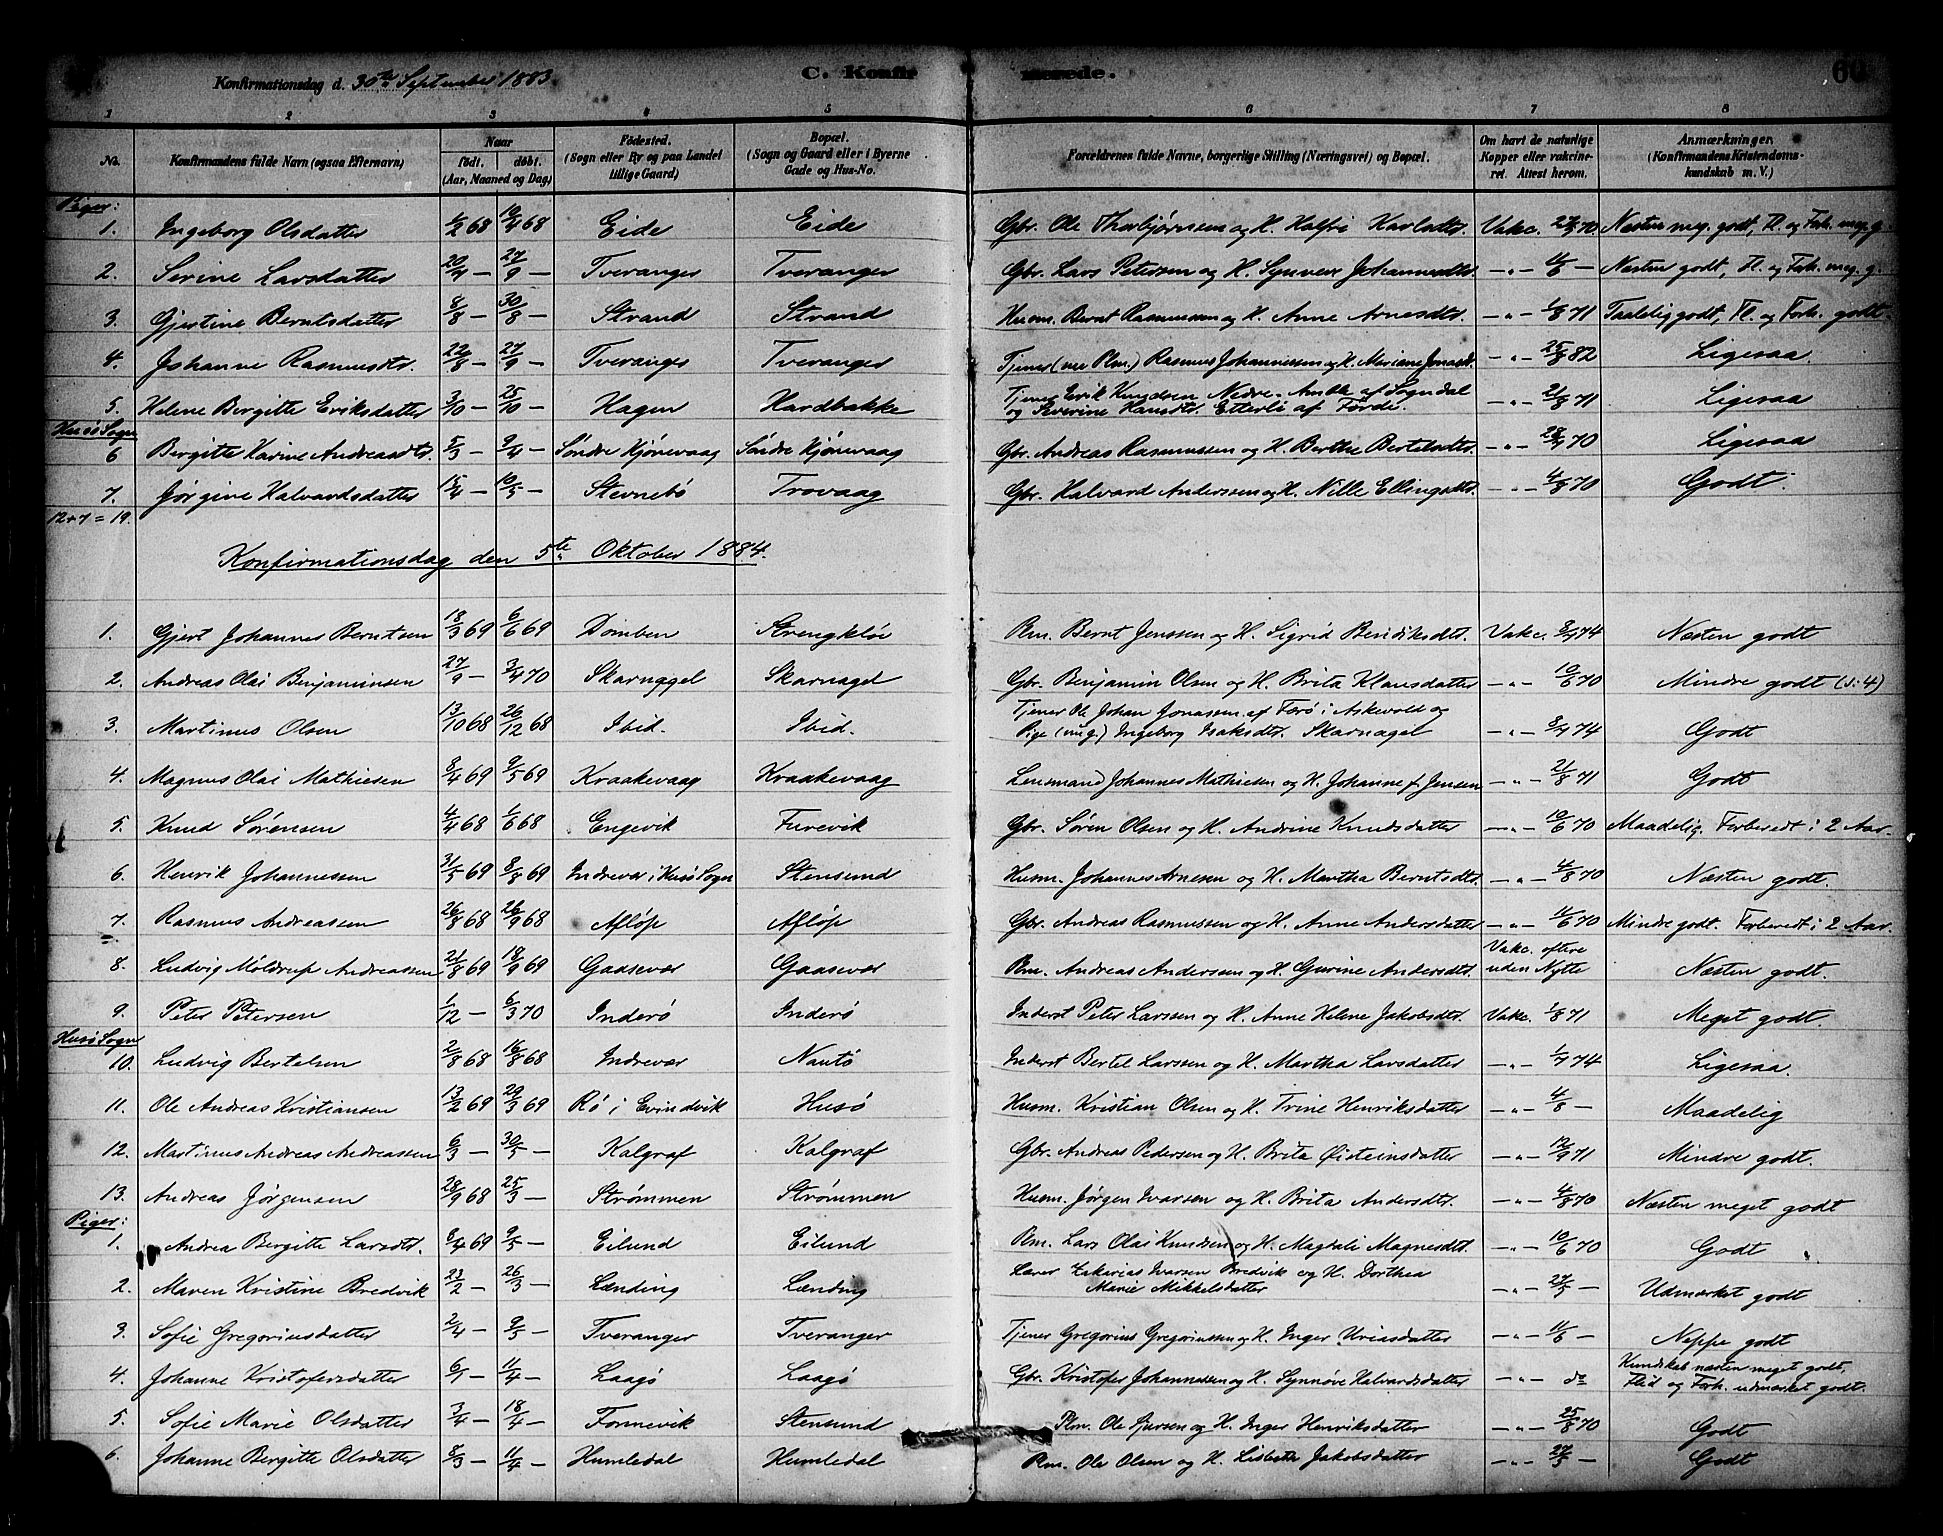 Konfirmationsdag d. 30te September 1883
C. Konfirmerede. 60
1 2 3 4 5 6 7 8
No. Konfirmandens fulde Navn (ogsaa Efternavn) Naar født. døbt. (Aar, Maaned og Dag) Fødested. (Sogn eller By og paa Landet tillige Gaard) Bopæl. (Sogn og Gaard eller i Byerne Gade og Hus-No. Forældrenes fulde Navne, borgerlige Stilling (Næringsvei) og Bopæl. Om havt de naturlige Kopper eller vakcineret. Attest herom. Anmærkninger (Konfirmandens Kristendomskundskab m. V.)
Piger:
1. Ingeborg Olsdatter 1/2 68 10/4 68 Eide Eide Gbr. Ole Thorbjørnsen og H. Halfri Karlsdatter. Vakc. 70 Næsten meg. godt, Fl. og Forh. meg. g.
2. Serine Larsdatter 20/4 — 27/9 — Tveranger Tveranger Gbr. Lars Petersen og H. Synneve Johannesdtr. —"— 11/6 — Næsten godt, Fl. og Forh. meg. g.
3. Gjertine Berntsdatter 8/8 — 30/8 — Strand Strand Husm. Bernt Rasmussen og H. Anne Arnesdtr. —"— 1/8 71 Taalelig godt, Fl. og Forh. godt.
4. Johanne Rasmusdtr. 22/8 — 27/9 — Tveranger Tveranger Tjener (nu Plm.) Rasmus Johannessen og H. Mariane Jonasdt. —"— 25/8 82 Ligesaa.
5. Helene Bergitte Eriksdatter 3/10 — 25/10 — Hagen Hardbakke Tjener Erik Knudsen Nedre-Amble af Sogndal og Severine Hansdtr. Etterlø af Førde. —"— 21/8 71 Ligesaa
Husø Sogn
6 Bergitte Karine Andreasdtr. 5/3 — 9/4 — Søndre Hjønevaag Søndre Hjønevaag Gbr. Andreas Rasmussen og H. Berthe Bertelsdtr. —"— 70 Ligesaa
7. Jørgine Halvardsdatter 15/4 — 10/5 — Stevnebø Trovaag Gbr. Halvard Anderssen og H. Nille Ellingsdtr. —"— 4/8 70 Godt.
12+7=19.
Konfirmationsdag den 5te Oktober 1884.
1. Gjert Johannes Berntsen 18/3 69 6/6 69 Domben Strengklø Rm. Bernt Jenssen og H. Sigrid Bendiksdtr. Vakc. 8/7 74 Næsten godt
2. Andreas Olai Benjaminsen 27/9 — 3/4 70 Skarnagel Skarnagel Gbr. Benjamin Olsen og H. Brita Klausdatter —"— 10/6 70 Mindre godt (s: 4)
3. Martinus Olsen 13/10 68 26/12 68 Ibid. Ibid. Tjener Ole Johan Jonassen af Førø i Askevold og Pige (ung.) Ingeborg Isaksdtr. Skarnagel —"— 8/7 74 Godt
4. Magnus Olai Mathiesen 8/4 69 9/5 69 Kraakevaag Kraakevaag Lensmand Johannes Mathiesen og H. Johanne f. Jensen —"— 21/8 71 Godt
5. Knud Sørensen 4/4 68 1/6 68 Engevik Furevik Gbr. Søren Olsen og H. Andrine Knudsdatter —"— 10/6 70 Maadelig. Forberedt i 2 Aar.
6. Henrik Johannessen 31/5 69 8/8 69 Indrevær i Husø Sogn Stensund Husm. Johannes Arnesen og H. Martha Berntsdtr. —"— 4/8 70 Næsten godt.
7. Rasmus Andreassen 26/8 68 26/9 68 Afløp Afløp Gbr. Andreas Rasmussen og H. Anne Andersdatter —"— 11/6 70 Mindre godt. Forberedt i 2 Aar.
8. Ludvig Moldrup Andreassen 21/8 69 18/9 69 Gaasevær Gaasevær Rm. Andreas Andersen og H. Gurine Andersdtr. Vakc. oftere uden Nytte Næsten godt.
9. Peter Petersen 1/12 — 6/3 70 Inderø Inderø Inderst Peter Larssen og H. Anne Helene Jakobsdtr. Vakc. 1/8 71 Meget godt.
Husø Sogn
10. Ludvig Bertelsen 2/8 68 16/8 68 Indrevær Nautø Inderst Bertel Larssen og H. Martha Larsdatter —"— 1/7 74 Ligesaa.
11. Ole Andreas Kristiansen 13/2 69 29/3 69 Rø i Evindvik Husø Husm. Kristian Olsen og H. Trine Henriksdatter —"— 4/8 — Maadelig
12. Martinus Andreas Andreassen 6/3 — 30/5 — Kalgraf Kalgraf Gbr. Andreas Pedersen og H. Brita Øisteinsdatter —"— 12/9 71 Mindre godt.
13. Andreas Jørgensen 28/9 68 25/3 — Strømmen Strømmen Husm. Jørgen Ivarsen og H. Brita Andersdtr. —"— 4/8 70 Næsten meget godt
Piger:
1. Andrea Bergitte Larsdtr. 8/4 69 9/5 — Eilund Eilund Rm. Lars Olai Knudsen og H. Magdali Magnesdtr. —"— 10/6 70 Godt
2. Maren Kristine Bredvik 23/2 — 26/3 — Lænding Lænding Lærer Zakarias Ivarsen Bredvik og H. Dorthea Marie Mikkelsdatter —"— 27/5 — Udmærket godt
3. Sofie Gregoriusdatter 2/4 — 9/5 — Tveranger Tveranger Tjener Gregorius Gregoriussen og H. Inger Uriasdatter —"— 11/6 — Neppe godt
4. Johanne Kristofersdatter 6/1 — 11/4 — Laagø Laagø Gbr. Kristofer Johannessen og H. Synnøve Halvardsdatter —"— do Kundskab næsten meget godt, Flid og Forh. udmærket godt.
5. Sofie Marie Olsdatter 3/4 — 18/4 — Fonnevik Stensund Plm. Ole Sjursen og H. Inger Henriksdatter —"— 25/8 70 Godt
6. Johanne Bergitte Olsdatter 8/3 — 11/4 — Humledal Humledal Rm. Ole Olsen og H. Lisbeth Jakobsdatter —"— 27/5 — Godt